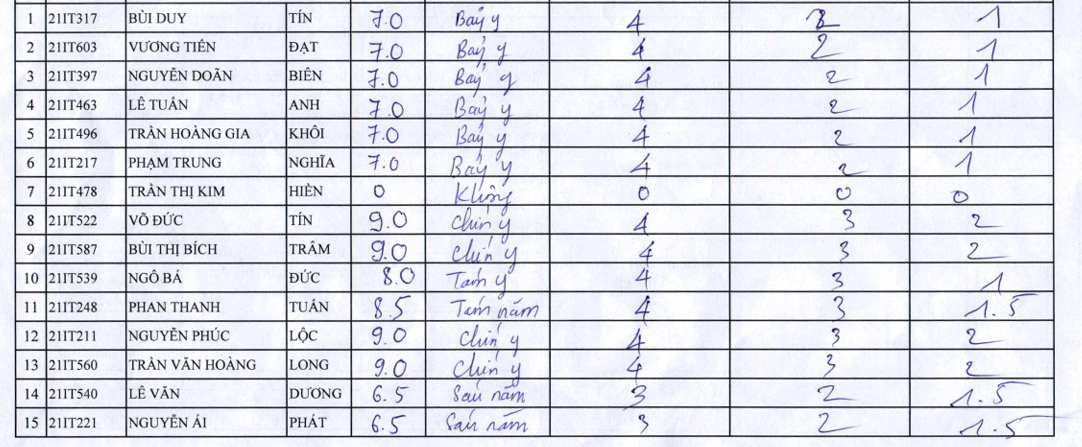 1 21IT317 BÙI DUY TÍN 7.0 Bảy y 4 2 1
2 21IT603 VƯƠNG TIẾN ĐẠT 7.0 Bảy y 4 2 1
3 21IT397 NGUYỄN DOÃN BIÊN 7.0 Bảy y 4 2 1
4 21IT463 LÊ TUẤN ANH 7.0 Bảy y 4 2 1
5 21IT496 TRẦN HOÀNG GIA KHÔI 7.0 Bảy y 4 2 1
6 21IT217 PHẠM TRUNG NGHĨA 7.0 Bảy y 4 2 1
7 21IT478 TRẦN THỊ KIM HIỀN 0 Không 0 0 0
8 21IT522 VÕ ĐỨC TÍN 9.0 Chín y 4 3 2
9 21IT587 BÙI THỊ BÍCH TRÂM 9.0 Chín y 4 3 2
10 21IT539 NGÔ BÁ ĐỨC 8.0 Tám y 4 3 1
11 21IT248 PHAN THANH TUẤN 8.5 Tám năm 4 3 1.5
12 21IT211 NGUYỄN PHÚC LỘC 9.0 Chín y 4 3 2
13 21IT560 TRẦN VĂN HOÀNG LONG 9.0 Chín y 4 3 2
14 21IT540 LÊ VĂN DƯƠNG 6.5 Sáu năm 3 2 1.5
15 21IT221 NGUYỄN ÁI PHÁT 6.5 Sáu năm 3 2 1.5